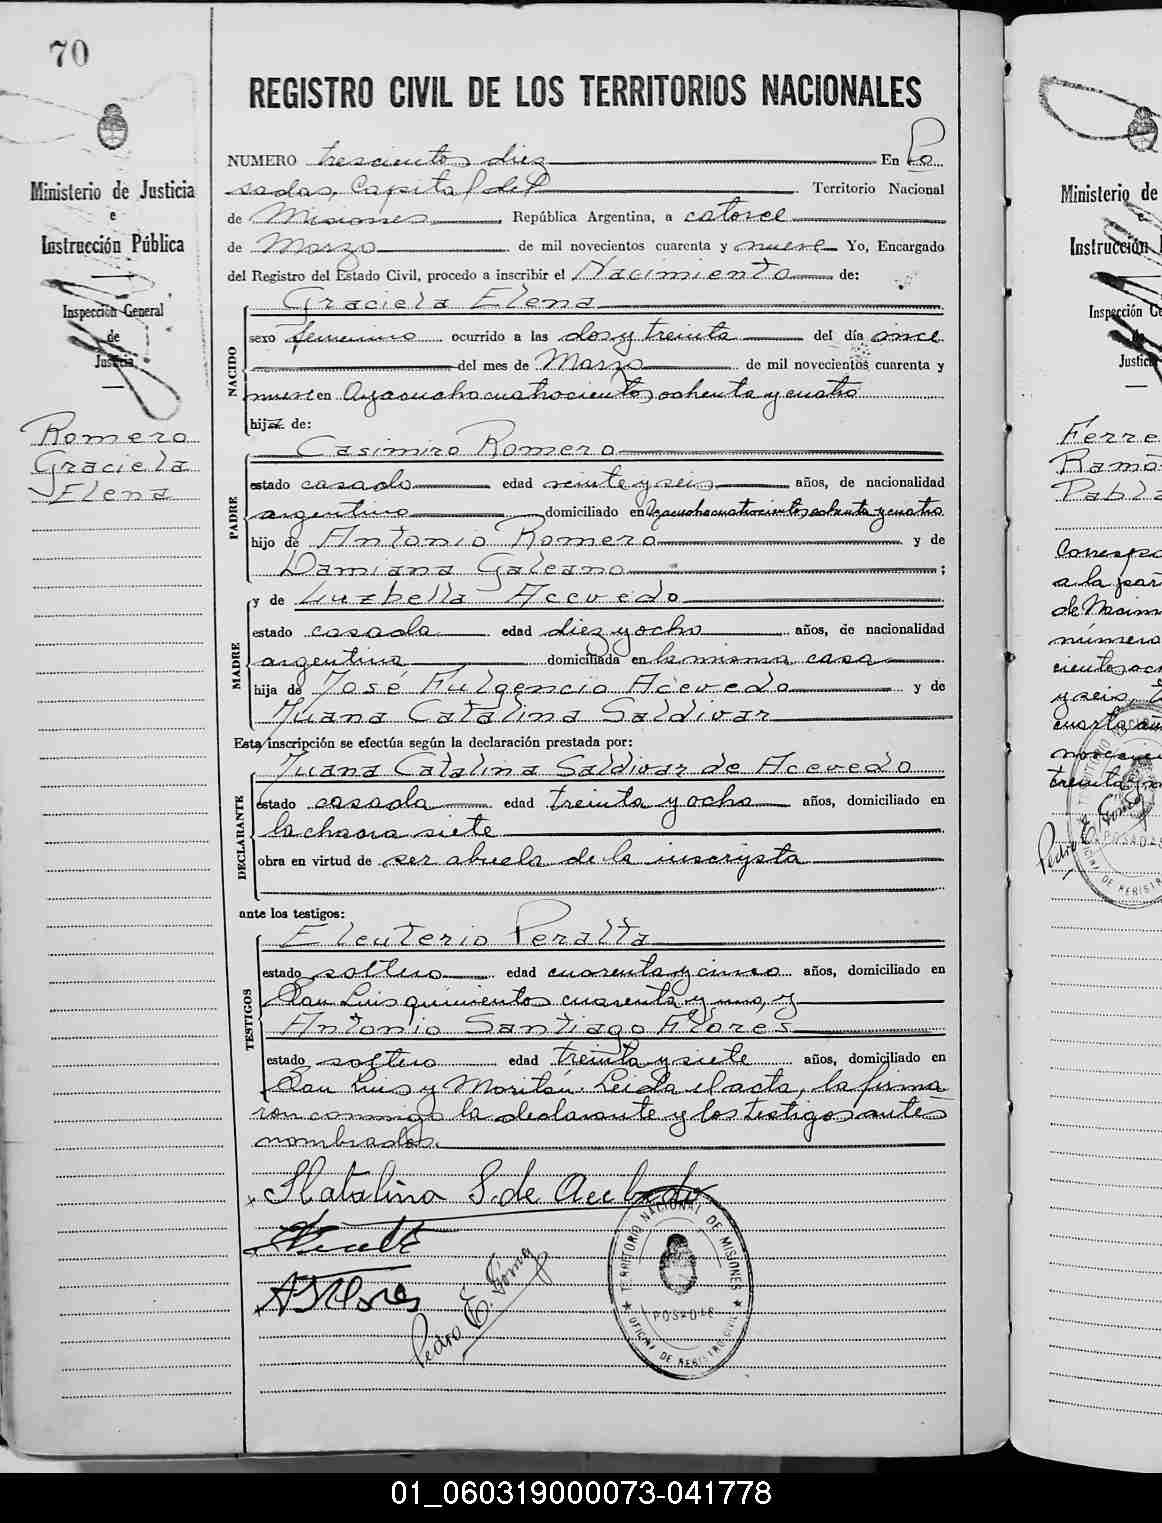 70
Ministerio de Justicia
e
Instrucción Pública
Inspección General
de
Justicia
Romero
Graciela
Elena
REGISTRO CIVIL DE LOS TERRITORIOS NACIONALES
NUMERO trescientos diez En Po
sadas, Capital del Territorio Nacional
de Misiones, República Argentina, a catorce
de Marzo de mil novecientos cuarenta y nueve Yo, Encargado
del Registro del Estado Civil, procedo a inscribir el Nacimiento de:
NACIDO
Graciela Elena
sexo femenino ocurrido a las dos y treinta del día once
del mes de Marzo de mil novecientos cuarenta y
nueve en Ayacucho cuatrocientos ochenta y cuatro
hija de:
PADRE
Casimiro Romero
estado casado edad veinte y seis años, de nacionalidad
argentino domiciliado en Ayacucho cuatrocientos ochenta y cuatro
hijo de Antonio Romero y de
Damiana Galeano ;
MADRE
y de Luzbella Acevedo
estado casada edad diez y ocho años, de nacionalidad
argentina domiciliada en la misma casa
hija de José Fulgencio Acevedo y de
Juana Catalina Saldivar
Esta inscripción se efectúa según la declaración prestada por:
DECLARANTE
Juana Catalina Saldivar de Acevedo
estado casada edad treinta y ocho años, domiciliado en
la chacra siete
obra en virtud de ser abuela de la inscripta
ante los testigos:
TESTIGOS
Eleuterio Peralta
estado soltero edad cuarenta y cinco años, domiciliado en
San Luis quinientos cuarenta y uno, y
Antonio Santiago Flores
estado soltero edad treinta y siete años, domiciliado en
San Luis y Moritán. Leida el acta, la firma
ron conmigo la declarante y los testigos antes
nombrados.
Catalina S. de Acebedo
A S Flores
Pedro E.
TERRITORIO NACIONAL DE MISIONES
POSADAS
OFICINA DE REGISTRO CIVIL
Ministerio de
Instrucción
Inspección Ge
de
Justicia
Ferre
Ramó
Pabla
Corresp
a la par
de Nacim
número
cientos oc
y seis,
cuarto
novecien
treinta y
Pedro E.
POSADAS
01_060319000073-041778